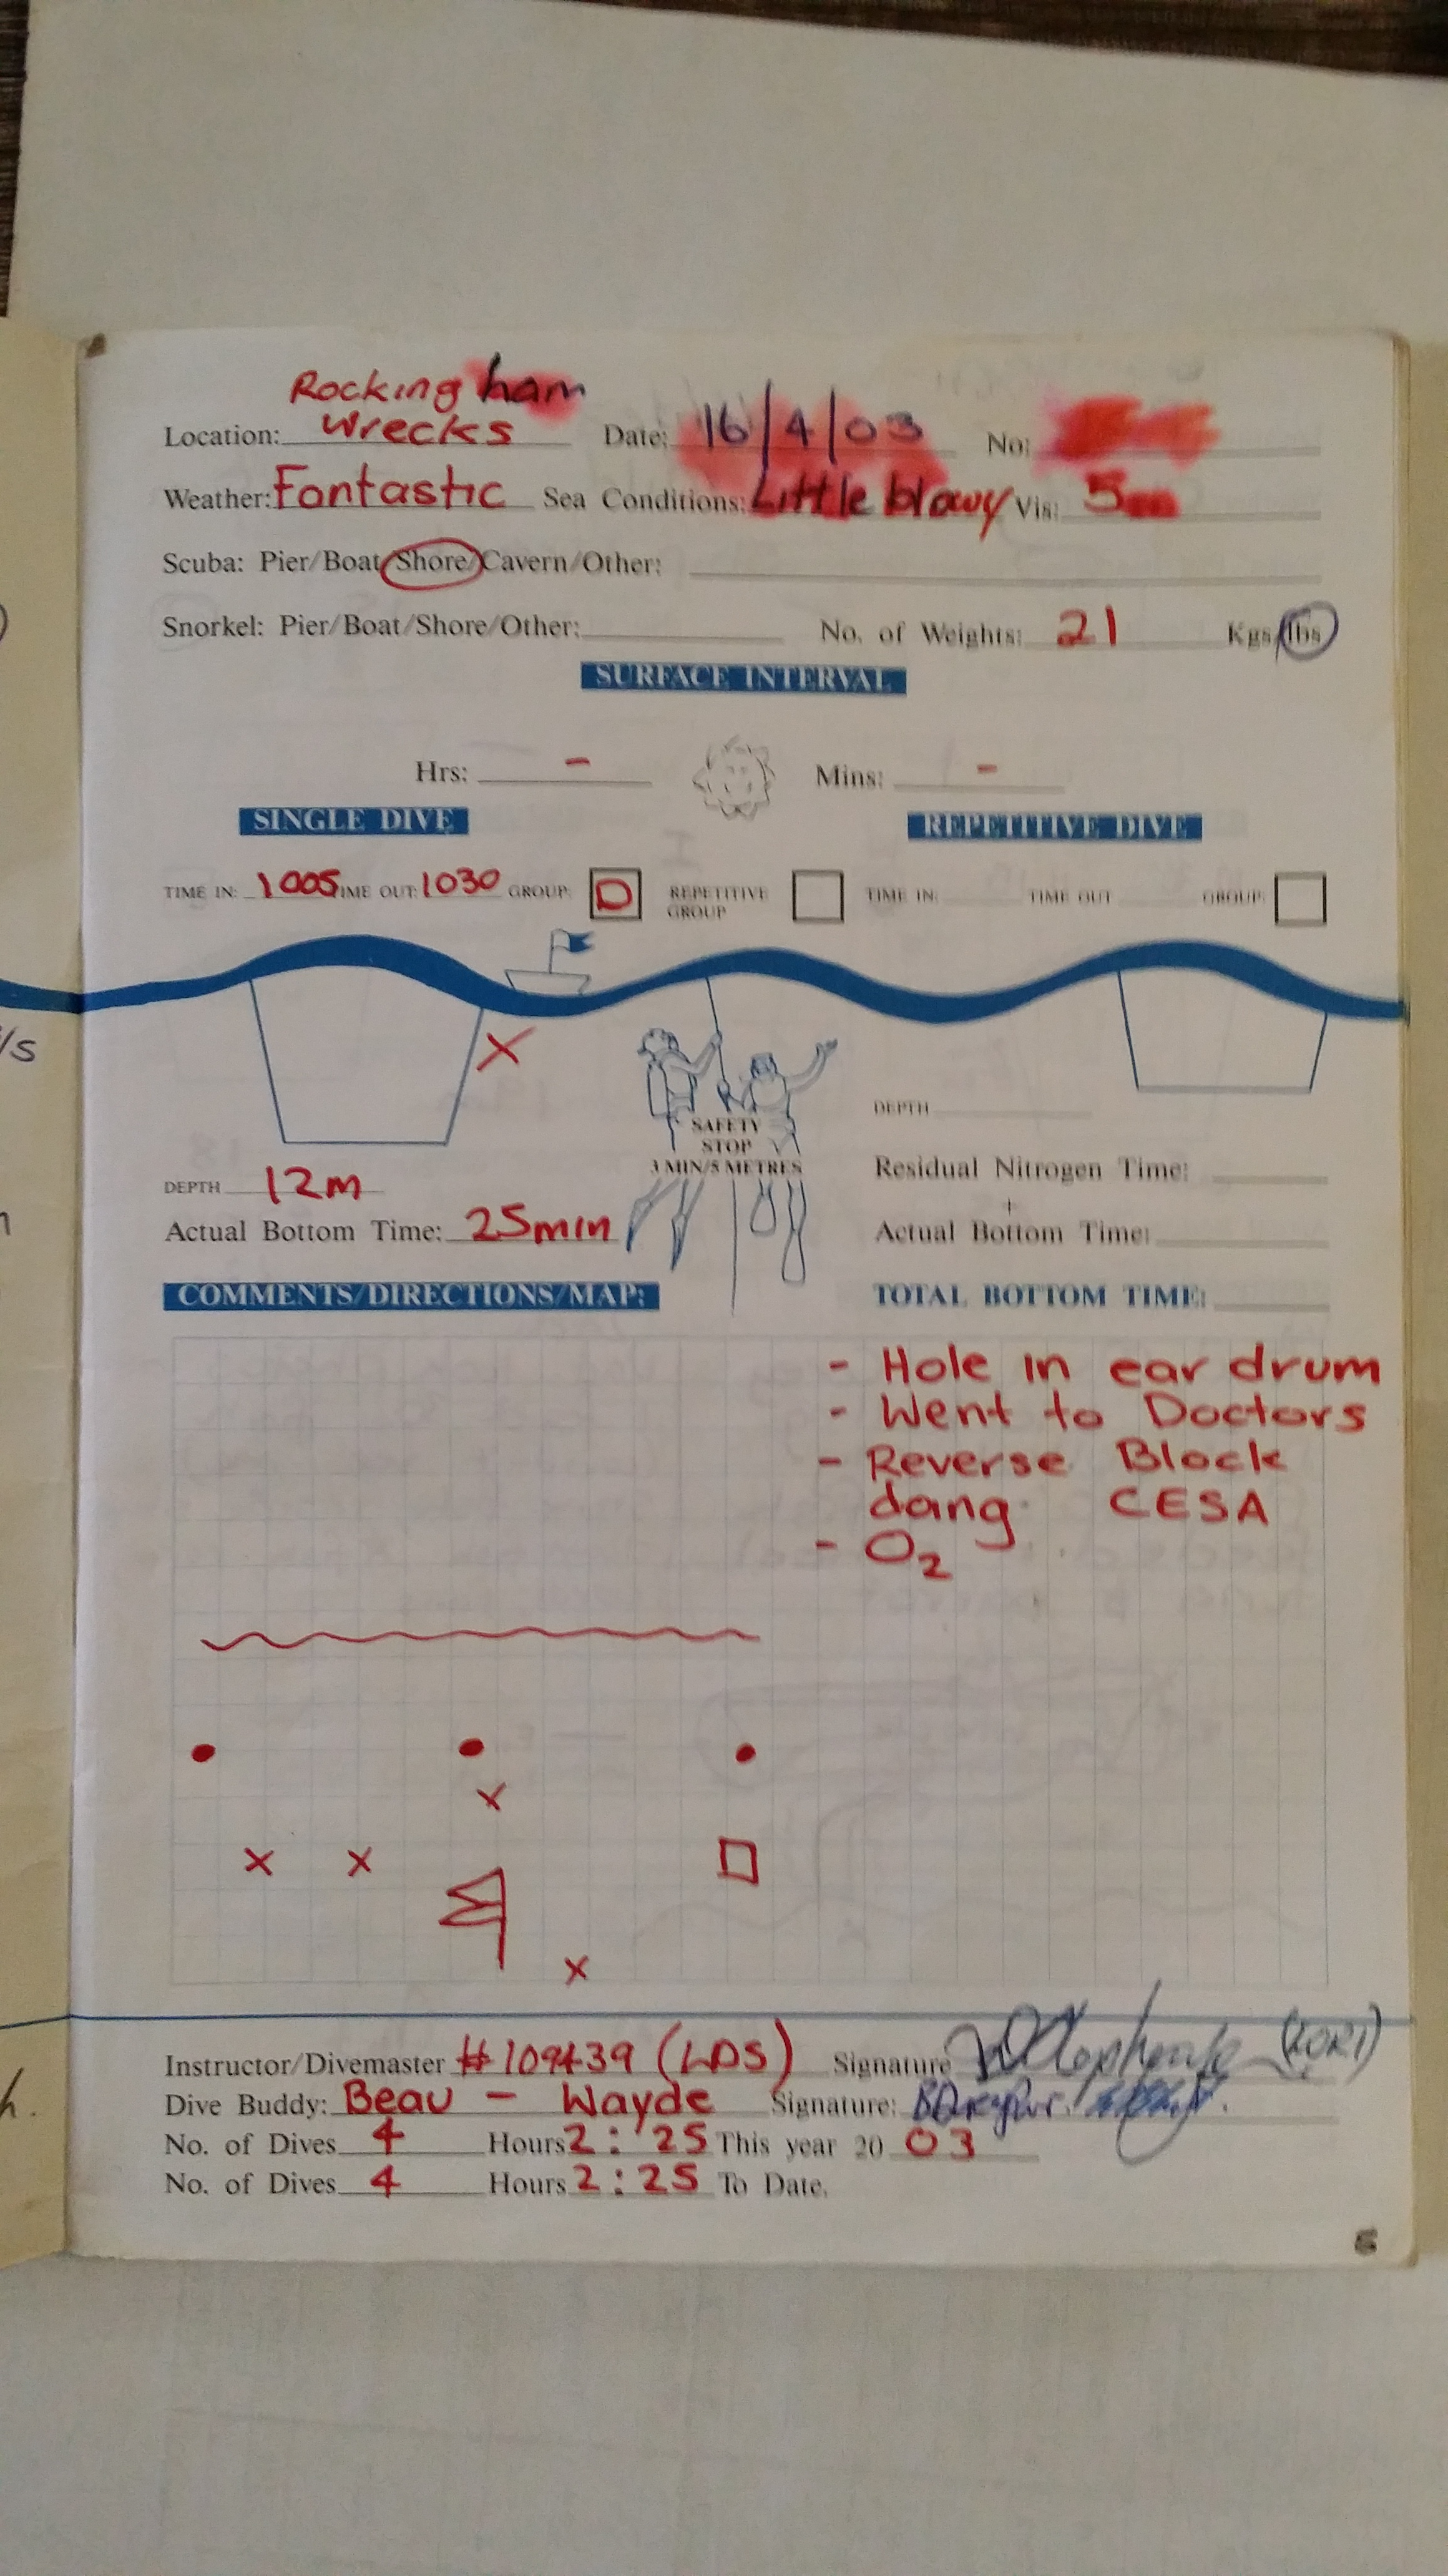 Rocking ham
Location: Wrecks Date: 16/4/03 No:
Weather: Fantastic Sea Conditions: Little blowy Vis: 5m
Scuba: Pier/Boat/Shore/Cavern/Other:
Snorkel: Pier/Boat/Shore/Other: No. of Weights: 21 Kgs/lbs
SURFACE INTERVAL
Hrs: - Mins: -
SINGLE DIVE REPETITIVE DIVE
TIME IN: 1005 TIME OUT: 1030 GROUP: D REPETITIVE GROUP TIME IN: TIME OUT GROUP:
SAFETY
STOP
3 MIN/5 METRES
DEPTH 12m
Actual Bottom Time: 25min
DEPTH
Residual Nitrogen Time:
+
Actual Bottom Time:
COMMENTS/DIRECTIONS/MAP: TOTAL BOTTOM TIME:
- Hole in ear drum
- Went to Doctors
- Reverse Block
doing CESA
- O2
Instructor/Divemaster #109439 (LDS) Signature (LORI)
Dive Buddy: Beau - Wayde Signature:
No. of Dives 4 Hours 2:25 This year 20 03
No. of Dives 4 Hours 2:25 To Date.